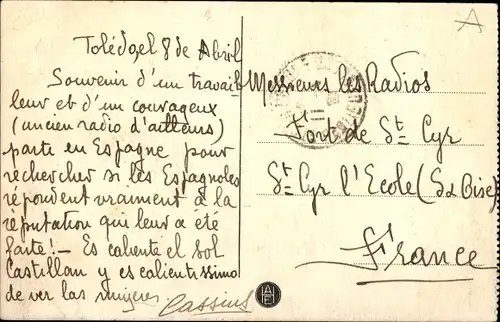 Tolédo, el 8 de Abril
Souvenir d'un travail
leur et d'un courageux
(ancien radio d'ailleurs)
parti en Espagne pour
rechercher si les Espagnoles
répondent vraiment à la
réputation qui leur a été
faite! — Es caliente el sol
Castillan y es calientissimo
de ver las mujeres
Cassius
Messieurs les Radios
Fort de St Cyr
St Cyr l'Ecole (S & Oise)
France
A